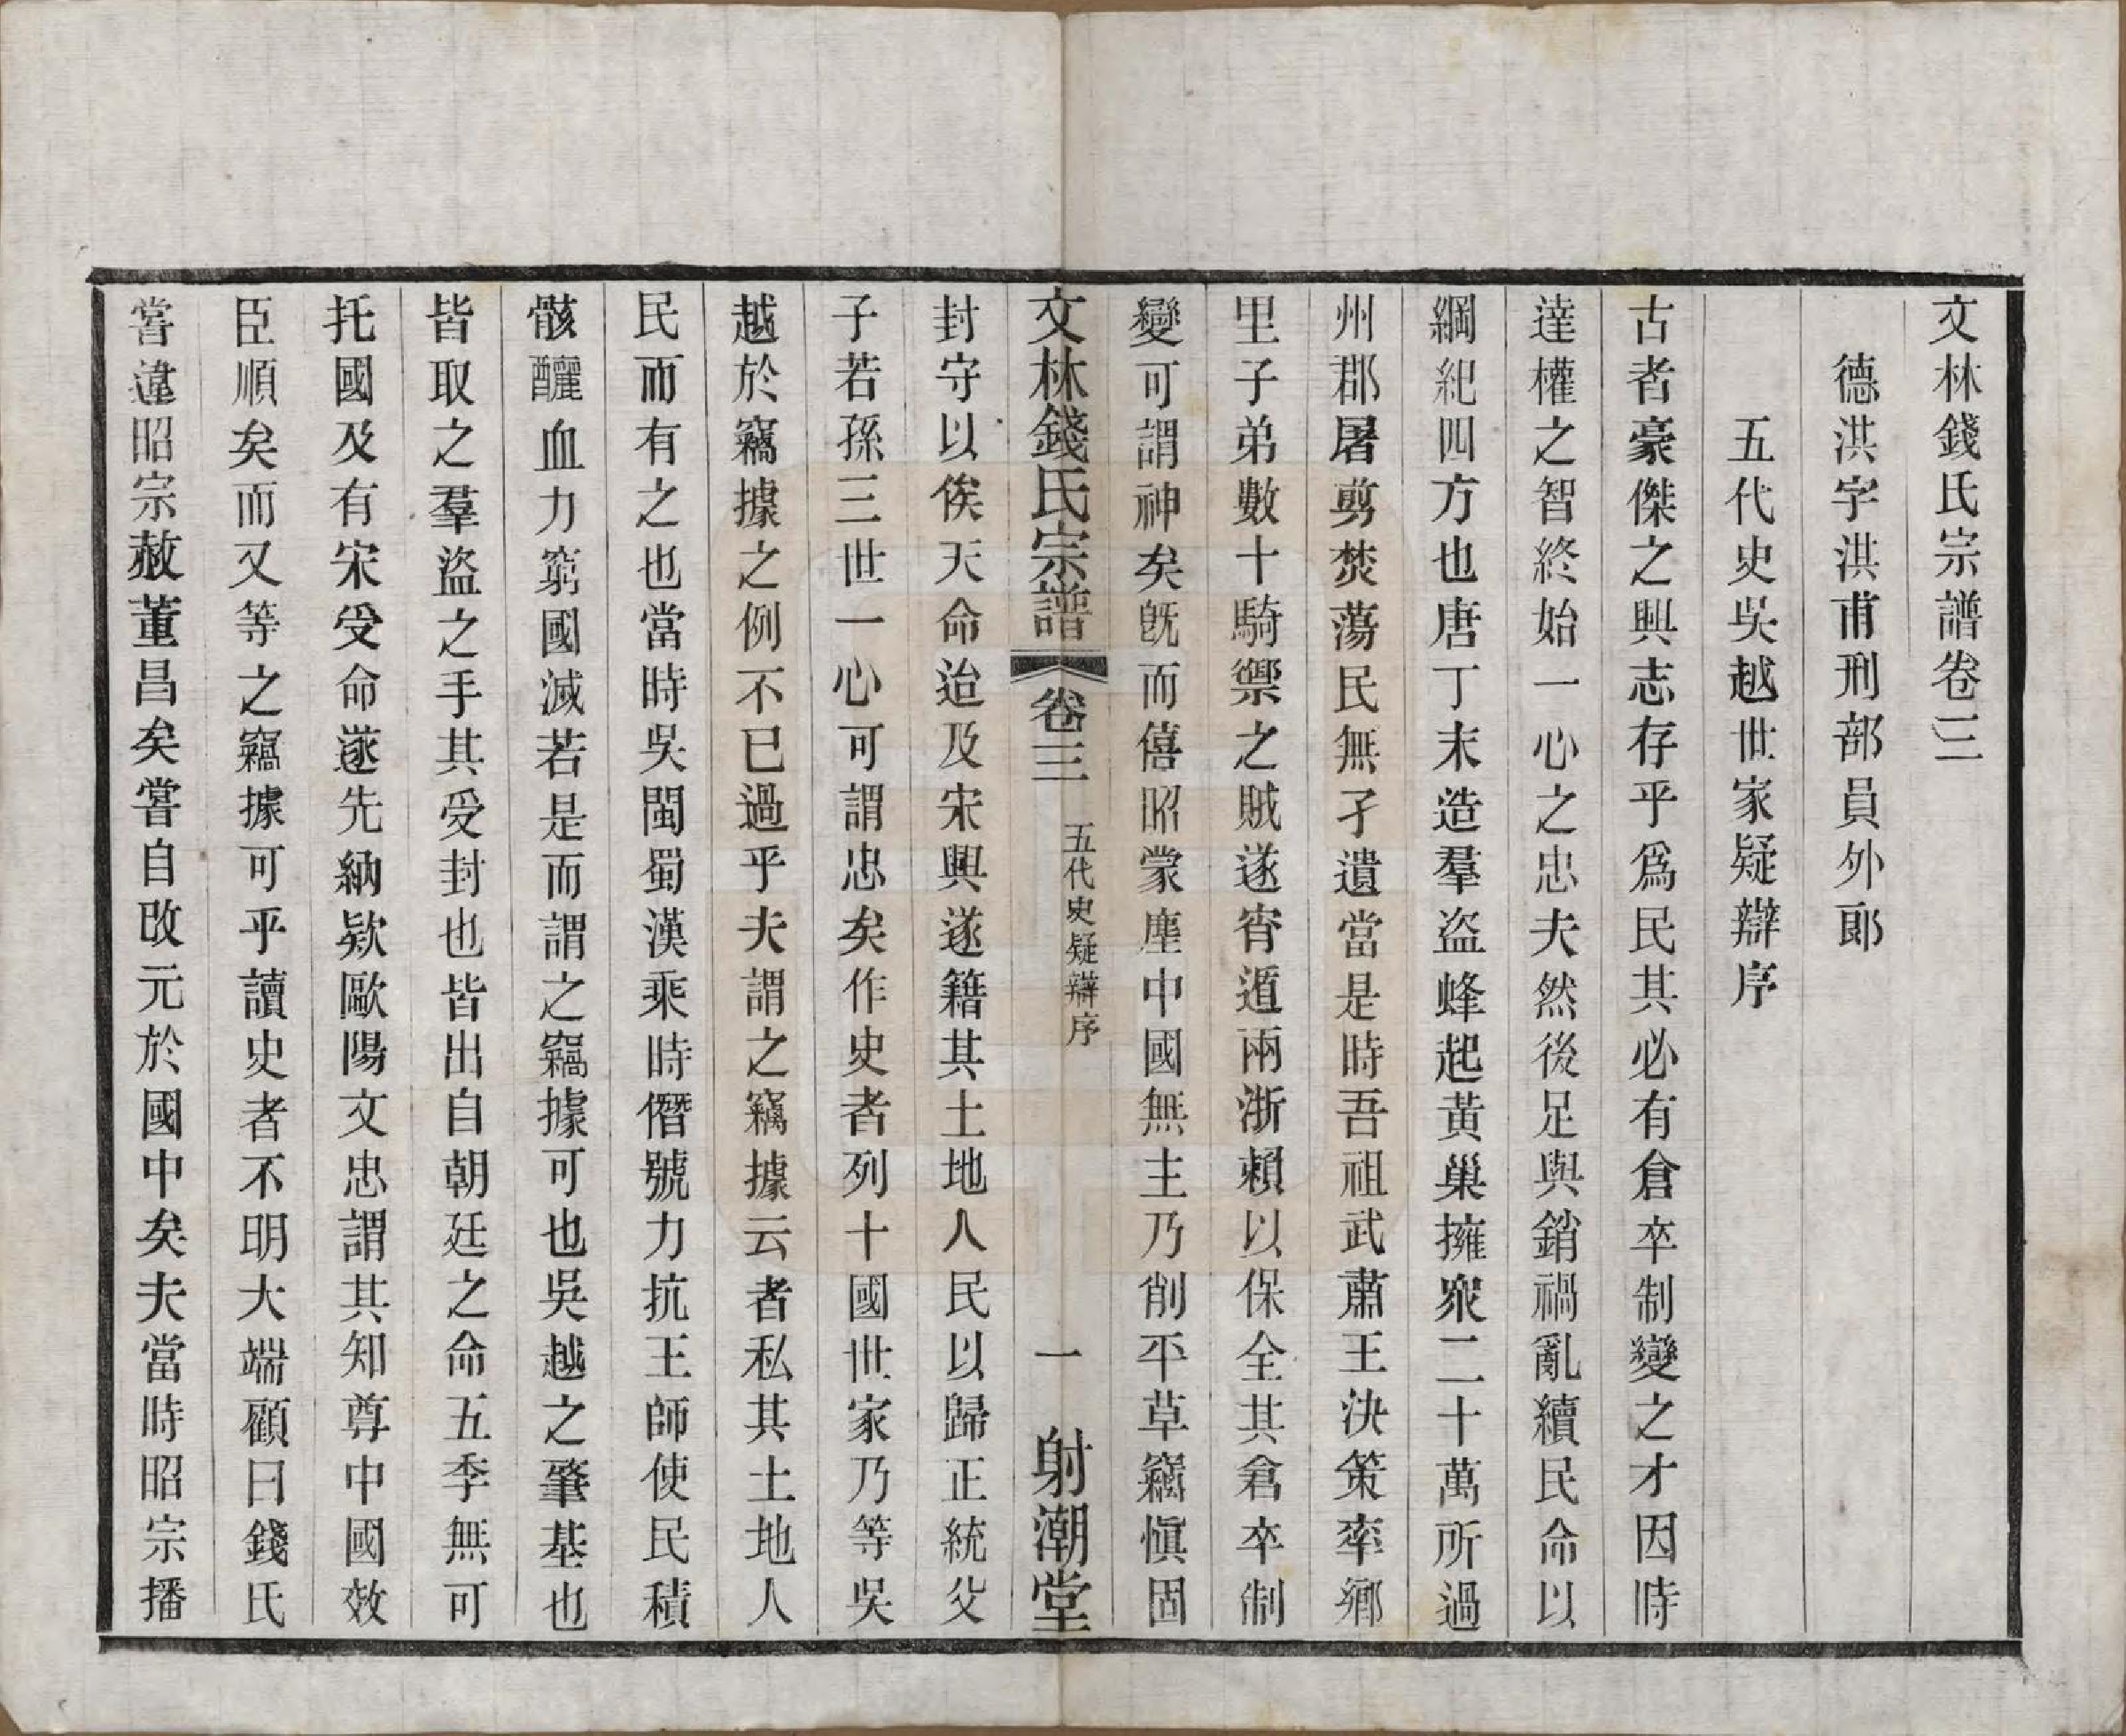 文林錢氏宗譜卷三
德洪字洪甫刑部員外郎
五代史吳越世家疑辯序
古者豪傑之興志存乎爲民其必有倉卒制變之才因時
達權之智終始一心之忠夫然後足與銷禍亂續民命以
綱紀四方也唐丁末造羣盜蜂起黃巢擁衆二十萬所過
州郡屠剪焚蕩民無孑遺當是時吾祖武肅王決策率鄉
里子弟數十騎禦之賊遂宵遁兩浙賴以保全其倉卒制
變可謂神矣旣而僖昭蒙塵中國無主乃削平草竊愼固
文林錢氏宗譜 卷三 五代史疑辯序 一 射潮堂
封守以俟天命迨及宋興遂籍其土地人民以歸正統父
子若孫三世一心可謂忠矣作史者列十國世家乃等吳
越於竊據之例不已過乎夫謂之竊據云者私其土地人
民而有之也當時吳閩蜀漢乘時僭號力抗王師使民積
骸釃血力窮國滅若是而謂之竊據可也吳越之肇基也
皆取之羣盜之手其受封也皆出自朝廷之命五季無可
托國及有宋受命遂先納欵歐陽文忠謂其知尊中國效
臣順矣而又等之竊據可乎讀史者不明大端顧曰錢氏
嘗違昭宗赦董昌矣嘗自改元於國中矣夫當時昭宗播